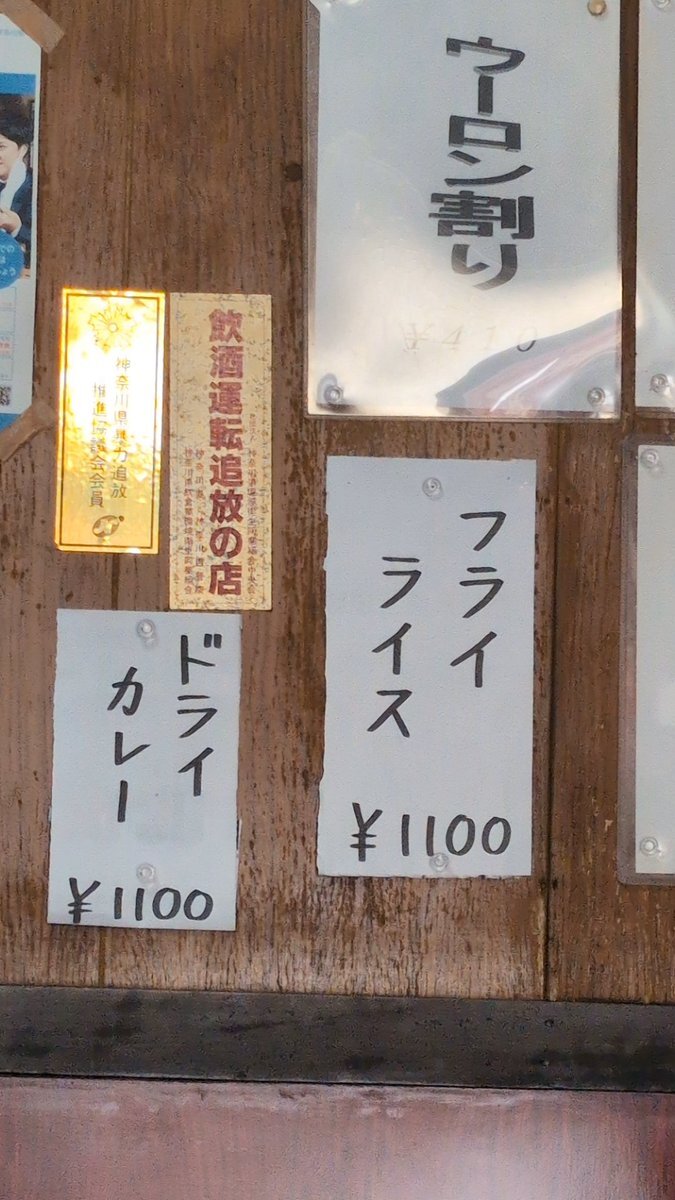 ウーロン割り
¥410
神奈川県暴力追放
推進協議会会員
飲酒運転追放の店
フライ
ライス
¥1100
ドライ
カレー
¥1100